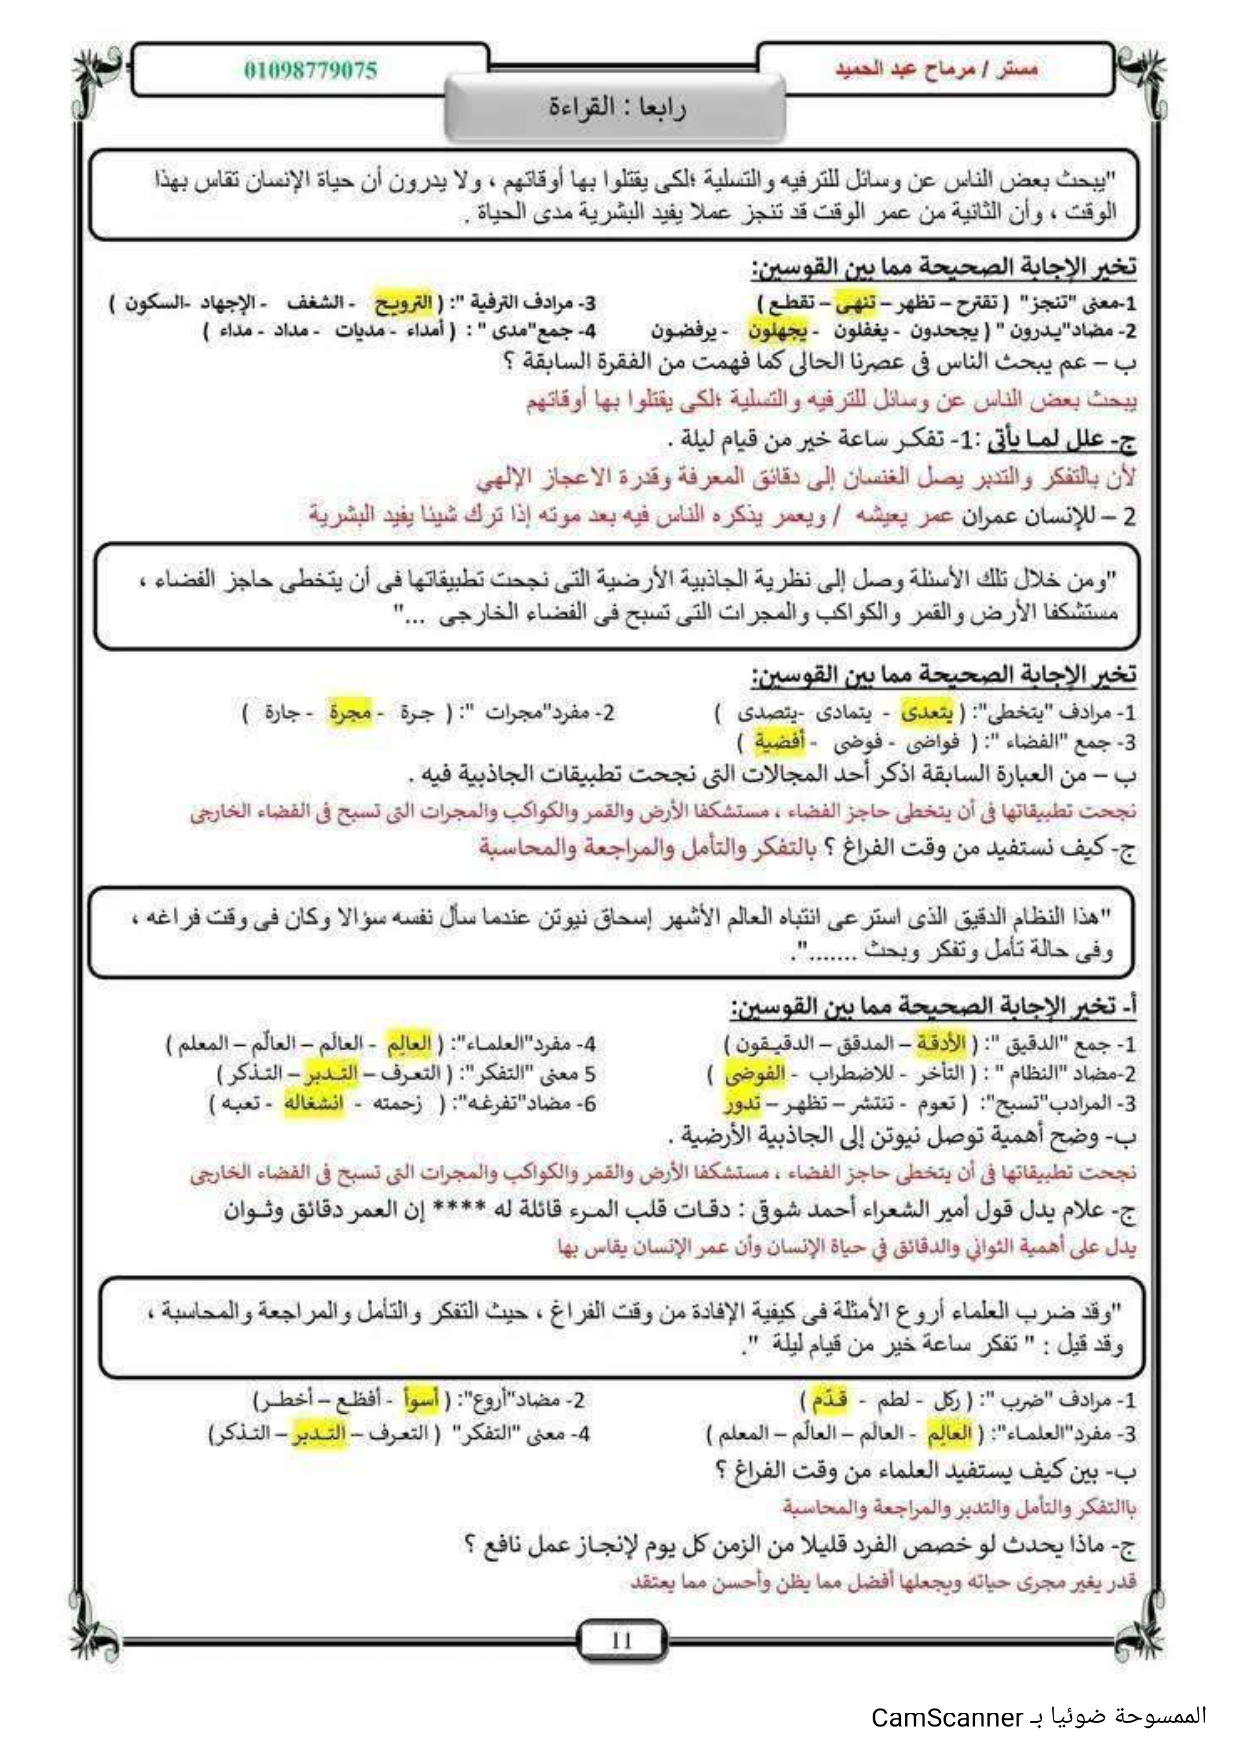 مستر / مرماح عبد الحميد
01098779075
رابعا : القراءة
"يبحث بعض الناس عن وسائل للترفيه والتسلية ؛لكى يقتلوا بها أوقاتهم ، ولا يدرون أن حياة الإنسان تقاس بهذا
الوقت ، وأن الثانية من عمر الوقت قد تنجز عملا يفيد البشرية مدى الحياة .
تخير الإجابة الصحيحة مما بين القوسين:
1-معنى "تنجز" ( تقترح – تظهر – تنهى – تقطع ) 3- مرادف الترفية ": ( الترويح - الشغف - الإجهاد -السكون )
2- مضاد"يدرون " ( يجحدون - يغفلون - يجهلون - يرفضون 4- جمع"مدى " : ( أمداء - مديات - مداد - مداء )
ب – عم يبحث الناس فى عصرنا الحالى كما فهمت من الفقرة السابقة ؟
يبحث بعض الناس عن وسائل للترفيه والتسلية ؛لكى يقتلوا بها أوقاتهم
ج- علل لما يأتى :1- تفكر ساعة خير من قيام ليلة .
لأن بالتفكر والتدبر يصل الغنسان إلى دقائق المعرفة وقدرة الاعجاز الإلهي
2 – للإنسان عمران عمر يعيشه / ويعمر يذكره الناس فيه بعد موته إذا ترك شيئا يفيد البشرية
"ومن خلال تلك الأسئلة وصل إلى نظرية الجاذبية الأرضية التى نجحت تطبيقاتها فى أن يتخطى حاجز الفضاء ،
مستشكفا الأرض والقمر والكواكب والمجرات التى تسبح فى الفضاء الخارجى ..."
تخير الإجابة الصحيحة مما بين القوسين:
1- مرادف "يتخطى": ( يتعدى - يتمادى -يتصدى ) 2- مفرد"مجرات ": ( جرة - مجرة - جارة )
3- جمع "الفضاء ": ( فواضى - فوضى - أفضية )
ب – من العبارة السابقة اذكر أحد المجالات التى نجحت تطبيقات الجاذبية فيه .
نجحت تطبيقاتها فى أن يتخطى حاجز الفضاء ، مستشكفا الأرض والقمر والكواكب والمجرات التى تسبح فى الفضاء الخارجى
ج- كيف نستفيد من وقت الفراغ ؟ بالتفكر والتأمل والمراجعة والمحاسبة
"هذا النظام الدقيق الذى استرعى انتباه العالم الأشهر إسحاق نيوتن عندما سأل نفسه سؤالا وكان فى وقت فراغه ،
وفى حالة تأمل وتفكر وبحث .......".
أ- تخير الإجابة الصحيحة مما بين القوسين:
1- جمع "الدقيق ": ( الأدقة – المدقق – الدقيقون ) 4- مفرد"العلماء": ( العالِم - العالَم – العالّم – المعلم )
2-مضاد "النظام " : ( التأخر - للاضطراب - الفوضى ) 5 معنى "التفكر": ( التعرف – التدبر – التذكر )
3- المرادب"تسبح": ( تعوم - تنتشر – تظهر – تدور 6- مضاد"تفرغه": ( زحمته - انشغاله - تعبه )
ب- وضح أهمية توصل نيوتن إلى الجاذبية الأرضية .
نجحت تطبيقاتها فى أن يتخطى حاجز الفضاء ، مستشكفا الأرض والقمر والكواكب والمجرات التى تسبح فى الفضاء الخارجى
ج- علام يدل قول أمير الشعراء أحمد شوقى : دقات قلب المرء قائلة له **** إن العمر دقائق وثوان
يدل على أهمية الثواني والدقائق في حياة الإنسان وأن عمر الإنسان يقاس بها
"وقد ضرب العلماء أروع الأمثلة فى كيفية الإفادة من وقت الفراغ ، حيث التفكر والتأمل والمراجعة والمحاسبة ،
وقد قيل : " تفكر ساعة خير من قيام ليلة ".
1- مرادف "ضرب ": ( ركل - لطم - قدّم ) 2- مضاد"أروع": ( أسوأ - أفظع – أخطر)
3- مفرد"العلماء": ( العالِم - العالَم – العالّم – المعلم ) 4- معنى "التفكر" ( التعرف – التدبر – التذكر)
ب- بين كيف يستفيد العلماء من وقت الفراغ ؟
باالتفكر والتأمل والتدبر والمراجعة والمحاسبة
ج- ماذا يحدث لو خصص الفرد قليلا من الزمن كل يوم لإنجاز عمل نافع ؟
قدر يغير مجرى حياته ويجعلها أفضل مما يظن وأحسن مما يعتقد
11
الممسوحة ضوئيا بـ CamScanner